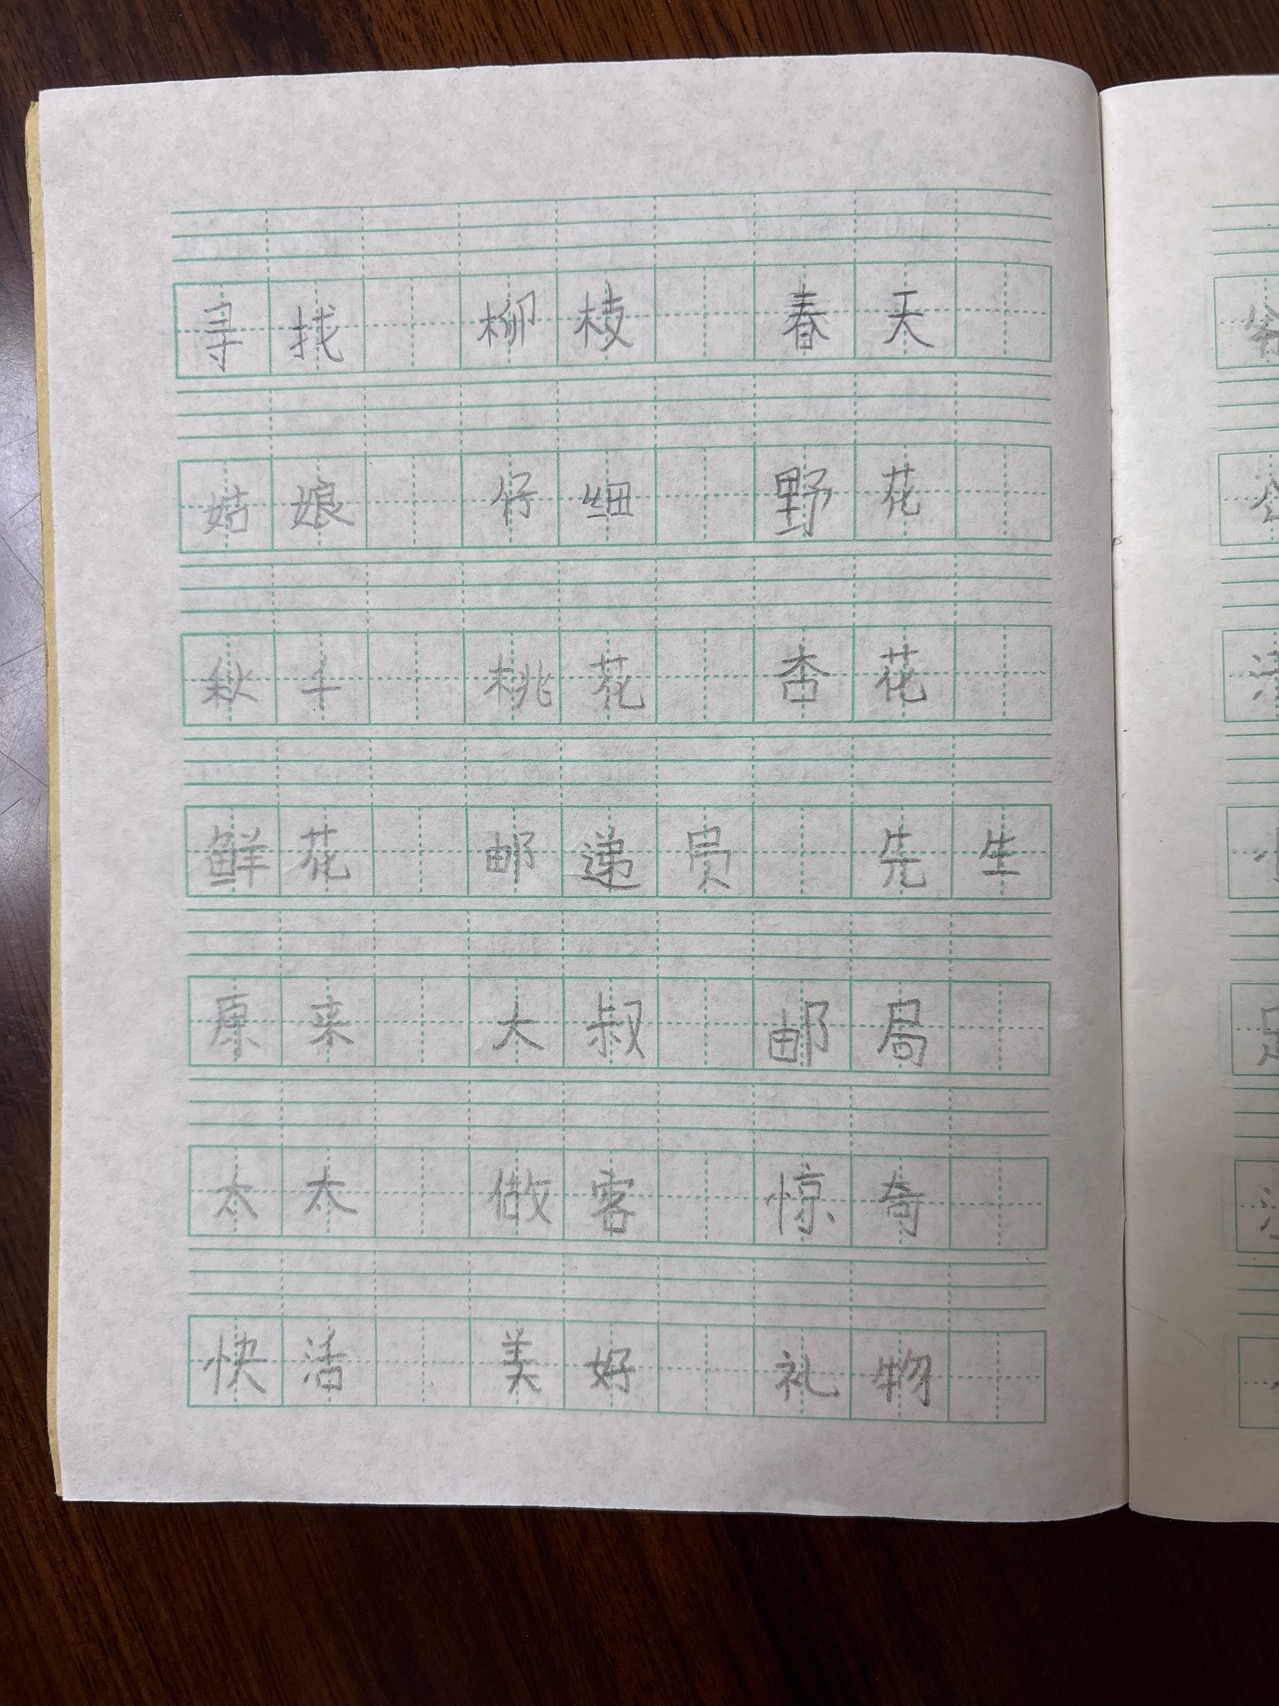 寻找 柳枝 春天
姑娘 仔细 野花
秋千 桃花 杏花
鲜花 邮递员 先生
原来 大叔 邮局
太太 做客 惊奇
快活 美好 礼物